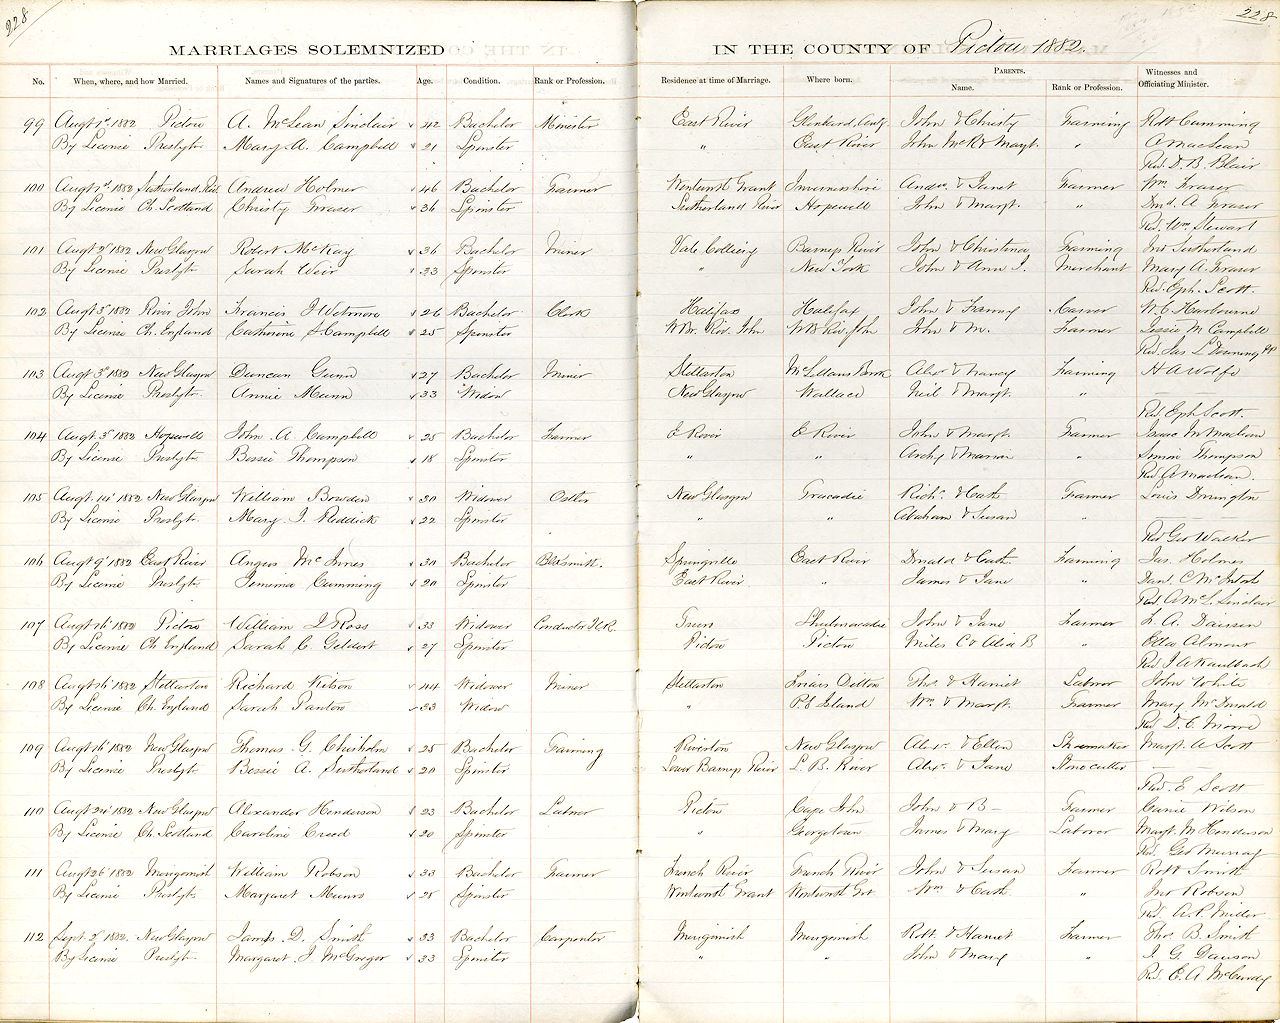 228
228
MARRIAGES SOLEMNIZED IN THE COUNTY OF Pictou 1882.
No. When, where, and how Married. Names and Signatures of the parties. Age. Condition. Rank or Profession. Residence at time of Marriage. Where born. PARENTS. Name. Rank or Profession. Witnesses and Officiating Minister.
99 Augt 1st 1882 Pictou A. McLean Sinclair 42 Bachelor Minister East River John & Christy Farming Robt Cumming
By License Presbyt. Mary A. Campbell 21 Spinster " East River John McK & Margt. " A Maclean
Rev. D. B. Blair
100 Augt 1st 1882 Sutherland Riv. Andrew Holmer 46 Bachelor Farmer Wentworth Grant Invernesshire Andw. & Janet Farmer Wm Fraser
By License Ch. Scotland Christy Fraser 36 Spinster Sutherland River Hopewell John & Margt. " A Fraser
Rev. Wm Stewart
101 Augt 2d 1882 New Glasgow Robert McKay 36 Bachelor Miner Vale Colliery Barneys River John & Christina Farming Jno Sutherland
By License Presbyt. Sarah Weir 23 Spinster " New York John & Ann J. Merchant Mary A. Fraser
Rev. Eph. Scott.
102 Augt 3d 1882 River John Francis J Wetmore 26 Bachelor Clerk Halifax Halifax John & Fanny W. C Harbourne
By License Ch. England Catherine S Campbell 25 Spinster W Br. Riv. John W B Riv. John John & M. Farmer Jessie M Campbell
Rev. Jas L Downing
103 Augt 3d 1882 New Glasgow Duncan Gunn 27 Bachelor Miner Stellarton McLellans Brook Alex & Nancy Farming H A Wolfe
By License Presbyt. Annie Munn 33 Widow New Glasgow Wallace Neil & Margt. " —
Rev. Eph Scott.
104 Augt. 3d 1882 Hopewell John A. Campbell 25 Bachelor Farmer E River E River John & Margt. Farmer Isaac M Maclean
By License Presbyt. Bessie Thompson 18 Spinster " " Archy & Marion " Simon Thompson
Rev. A Maclean.
105 Augt. 14th 1882 New Glasgow William Bowden 30 Widower Ostler New Glasgow Tracadie Richd. & Cath Farmer Louis Dorrington
By License Presbyt. Mary J. Reddick 22 Spinster " " Abraham & Susan " —
Rev Geo Walker
106 Augt 9th 1882 East River Angus McInnes 30 Bachelor Blksmith. Springville East River Donald & Cath. Farming Jas. Holmes
By License Presbyt. Jemima Cumming 20 Spinster East River " James & Jane " Dan. C McIntosh
Rev. A McL. Sinclair
107 Augt 16th 1882 Pictou William D Ross 33 Widower Conductor I.C.R. Truro Shubenacadie John & Jane Farmer F. A. Dawson
By License Ch England Sarah C. Geldert 27 Spinster Pictou Pictou Miles C & Alia B " Etta Almont
Rev J A Kaulbach
108 Augt 16th 1882 Stellarton Richard Kitson 44 Widower Miner Stellarton Friars Ditton Thos. & Harriet Labour John White
By License Ch. England Sarah Panton 23 Widow " P E Island Wm & Margt. Farmer Mary McDonald
Rev D. C. Moore
109 Augt 16th 1882 New Glasgow Thomas G. Chisholm 25 Bachelor Farming Riverton New Glasgow Alexr. & Ellen Shoemaker Margt. A Scott
By License Presbyt. Bessie A. Sutherland 20 Spinster Lower Barneys River L. B. River Alex. & Jane Stonecutter —
Rev. E Scott
110 Augt 24th 1882 New Glasgow Alexander Henderson 23 Bachelor Labour Pictou Cape John John & B— Farmer Carrie Wilson
By License Ch. Scotland Caroline Creed 20 Spinster " Georgetown James & Mary Laborer Margt. M Henderson
Rev. Geo Murray
111 Augt 26th 1882 Merigomish William Robson 33 Bachelor Farmer French River French River John & Susan Farmer Robt Smith
By License Presbyt. Margaret Munro 28 Spinster Wentworth Grant Wentworth Grt. Wm & Cath. " Jno Robson
Rev. A. P. Miller
112 Sept. 2d 1882. New Glasgow James. D. Smith 33 Bachelor Carpenter Merigomish Merigomish Robt. & Harriet Farmer Thos. B. Smith
By License Presbyt. Margaret J McGregor 33 Spinster " " John & Mary " J. G. Dawson
Rev. E. A. McCurdy